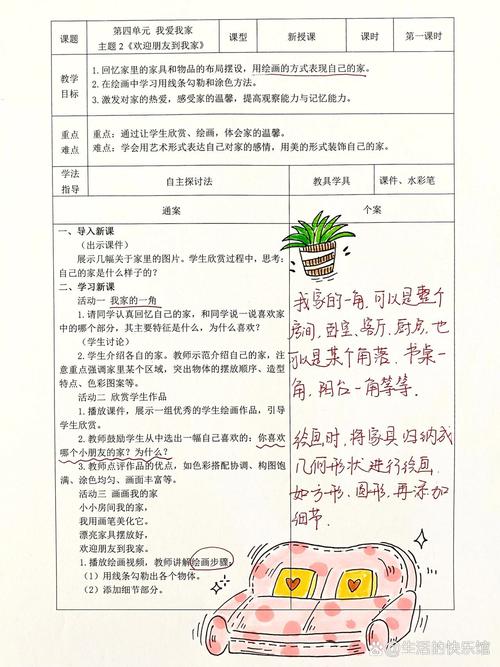 课题
第四单元 我爱我家
主题2《欢迎朋友到我家》
课型
新授课
课时
第一课时
教学
目标
1.回忆家里的家具和物品的布局摆设,用绘画的方式表现自己的家。
2.在绘画中学习用线条勾勒和涂色方法。
3.激发对家的热爱,感受家的温馨,提高观察能力与记忆能力。
重点
难点
重点:通过让学生欣赏、绘画,体会家的温馨。
难点:学会用艺术形式表达自己对家的感情,用美的形式装饰自己的家。
学法
指导
自主探讨法
教具学具
课件、水彩笔
通案
个案
一、导入新课
(出示课件)
展示几幅关于家里的图片。学生欣赏过程中,思考:
自己的家是什么样子的?
二、学习新课
活动一 我家的一角
1.请同学认真回忆自己的家,和同学说一说喜欢家
中的哪个部分,其主要特征是什么,为什么喜欢?
(学生讨论)
2.学生介绍各自的家。教师示范介绍自己的家,注
意重点强调家里某个区域,突出物体的摆放顺序、造型
特点、色彩图案等。
活动二 欣赏学生作品
1.播放课件,展示一组优秀的学生绘画作品,引导
学生欣赏。
2.教师鼓励学生从中选出一幅自己喜欢的:你喜欢
哪个小朋友的家?为什么?
3.教师点评作品的优点,如色彩搭配协调、构图饱
满、涂色均匀、画面丰富等。
活动三 画画我的家
小小房间我的家,
我用画笔美化它。
漂亮家具摆放好,
欢迎朋友到我家。
1.播放绘画视频,教师讲解绘画步骤:
(1)用线条勾勒出各个物体。
(2)添加细节部分。
我家的一角,可以是整个
房间,卧室、客厅、厨房,也
可以是某个角落,书桌一
角,阳台一角等等。
绘画时,将家具归纳成
几何形状进行绘画,
如方形、圆形,再添加
细节.
@生活的快乐馆